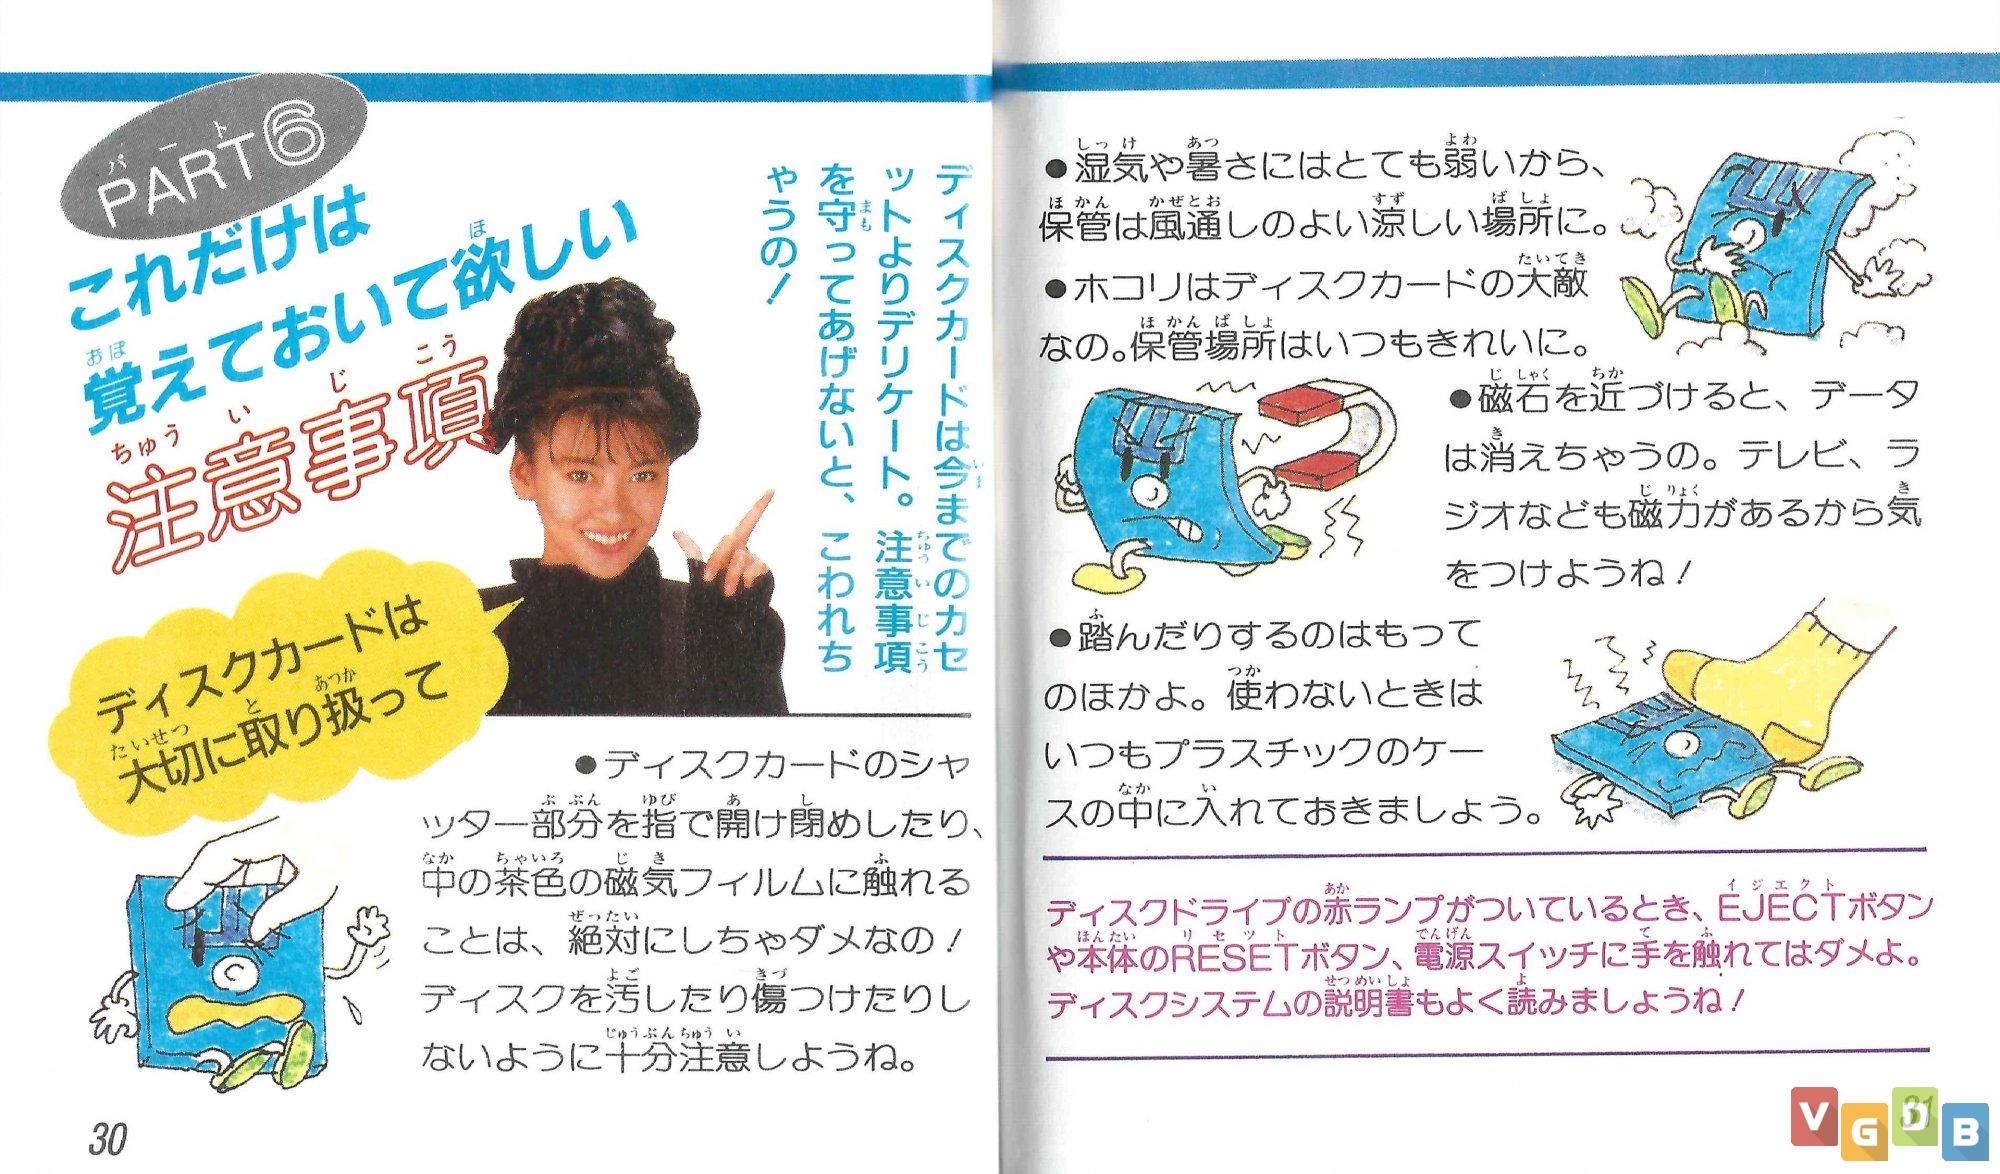 PART6
これだけは
覚えておいて欲しい
注意事項
ディスクカードは今までのカセ
ットよりデリケート。注意事項
を守ってあげないと、こわれち
ゃうの！
ディスクカードは
大切に取り扱って
●ディスクカードのシャ
ッター部分を指で開け閉めしたり、
中の茶色の磁気フィルムに触れる
ことは、絶対にしちゃダメなの！
ディスクを汚したり傷つけたりし
ないように十分注意しようね。
30
●湿気や暑さにはとても弱いから、
保管は風通しのよい涼しい場所に。
●ホコリはディスクカードの大敵
なの。保管場所はいつもきれいに。
●磁石を近づけると、データ
は消えちゃうの。テレビ、ラ
ジオなども磁力があるから気
をつけようね！
●踏んだりするのはもって
のほかよ。使わないときは
いつもプラスチックのケー
スの中に入れておきましょう。
ディスクドライブの赤ランプがついているとき、EJECTボタン
や本体のRESETボタン、電源スイッチに手を触れてはダメよ。
ディスクシステムの説明書もよく読みましょうね！
31
VGDB